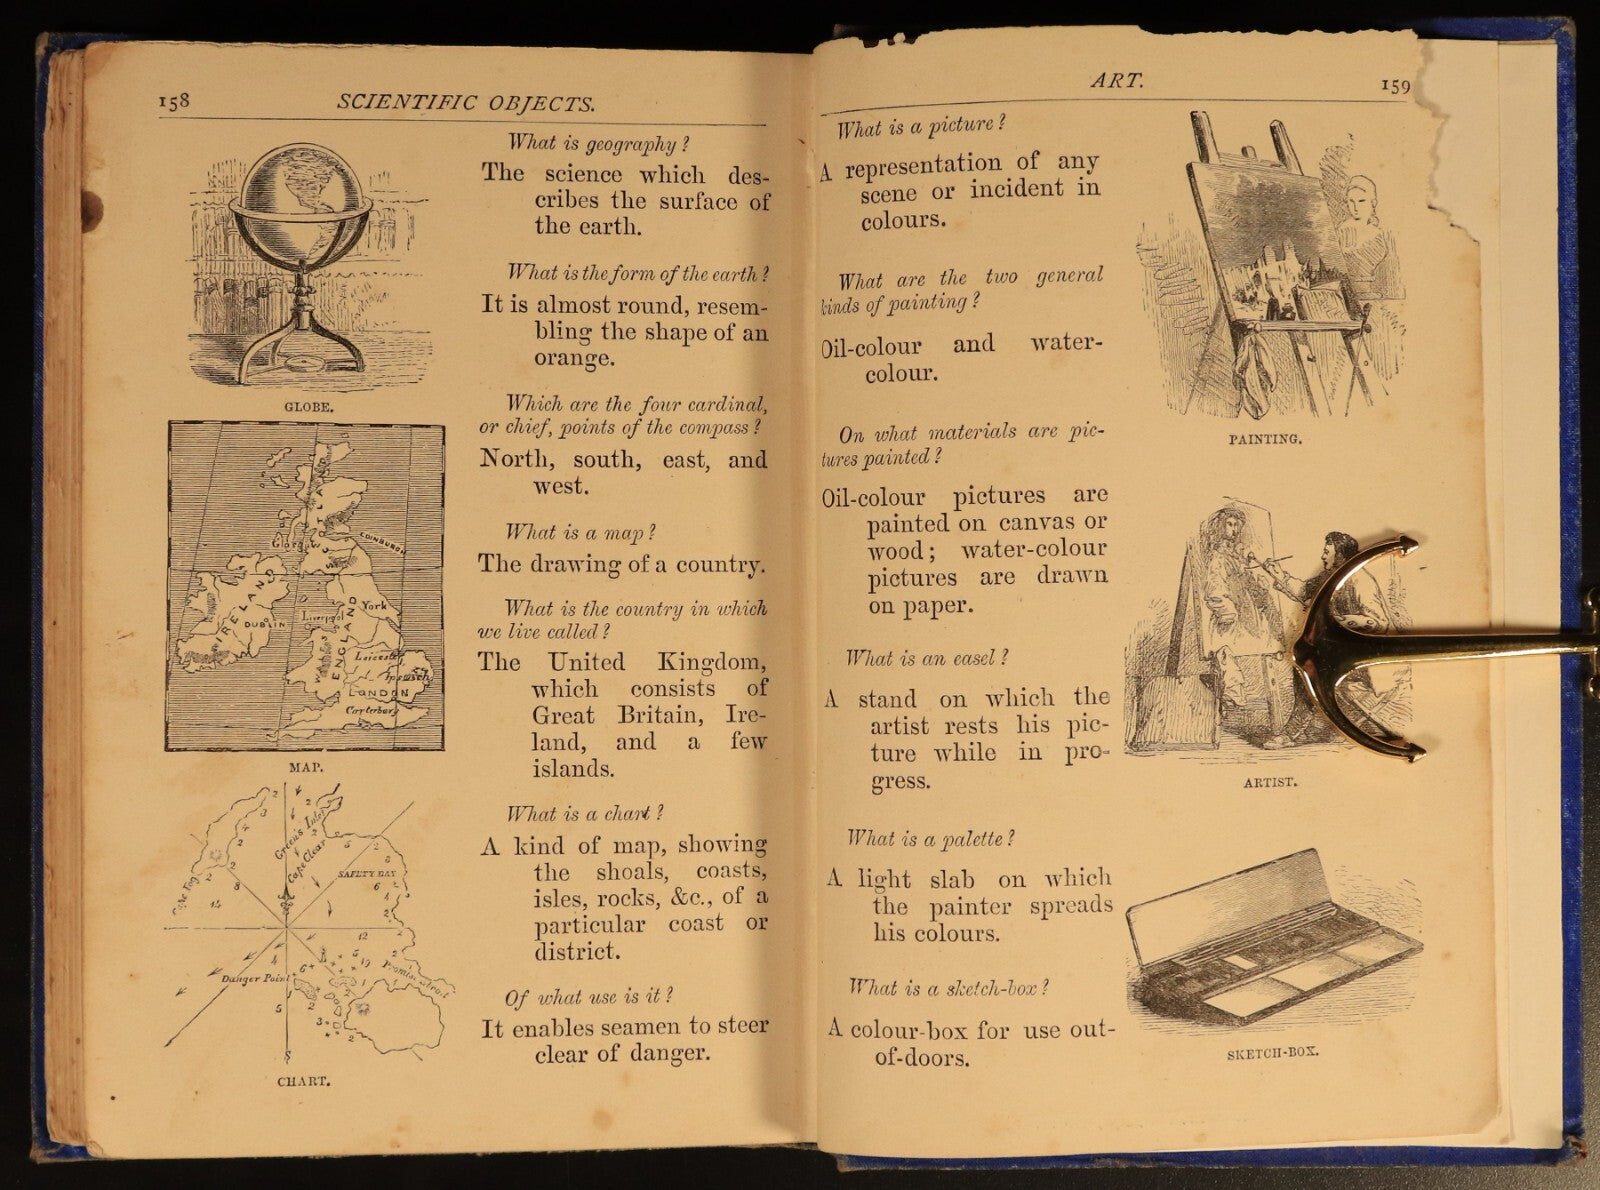 158
SCIENTIFIC OBJECTS.
GLOBE.
EDINBURGH
SCOTLAND
IRELAND
DUBLIN
York
Liverpool
ENGLAND
Wales
Leicester
Ipswich
LONDON
MAP.
Cape Clear
SAFETY BAY
Danger Point
CHART.
What is geography?
The science which des-
cribes the surface of
the earth.
What is the form of the earth?
It is almost round, resem-
bling the shape of an
orange.
Which are the four cardinal,
or chief, points of the compass?
North, south, east, and
west.
What is a map?
The drawing of a country.
What is the country in which
we live called?
The United Kingdom,
which consists of
Great Britain, Ire-
land, and a few
islands.
What is a chart?
A kind of map, showing
the shoals, coasts,
isles, rocks, &c., of a
particular coast or
district.
Of what use is it?
It enables seamen to steer
clear of danger.
ART.
159
What is a picture?
A representation of any
scene or incident in
colours.
What are the two general
kinds of painting?
Oil-colour and water-
colour.
On what materials are pic-
tures painted?
Oil-colour pictures are
painted on canvas or
wood; water-colour
pictures are drawn
on paper.
What is an easel?
A stand on which the
artist rests his pic-
ture while in pro-
gress.
What is a palette?
A light slab on which
the painter spreads
his colours.
What is a sketch-box?
A colour-box for use out-
of-doors.
PAINTING.
ARTIST.
SKETCH-BOX.